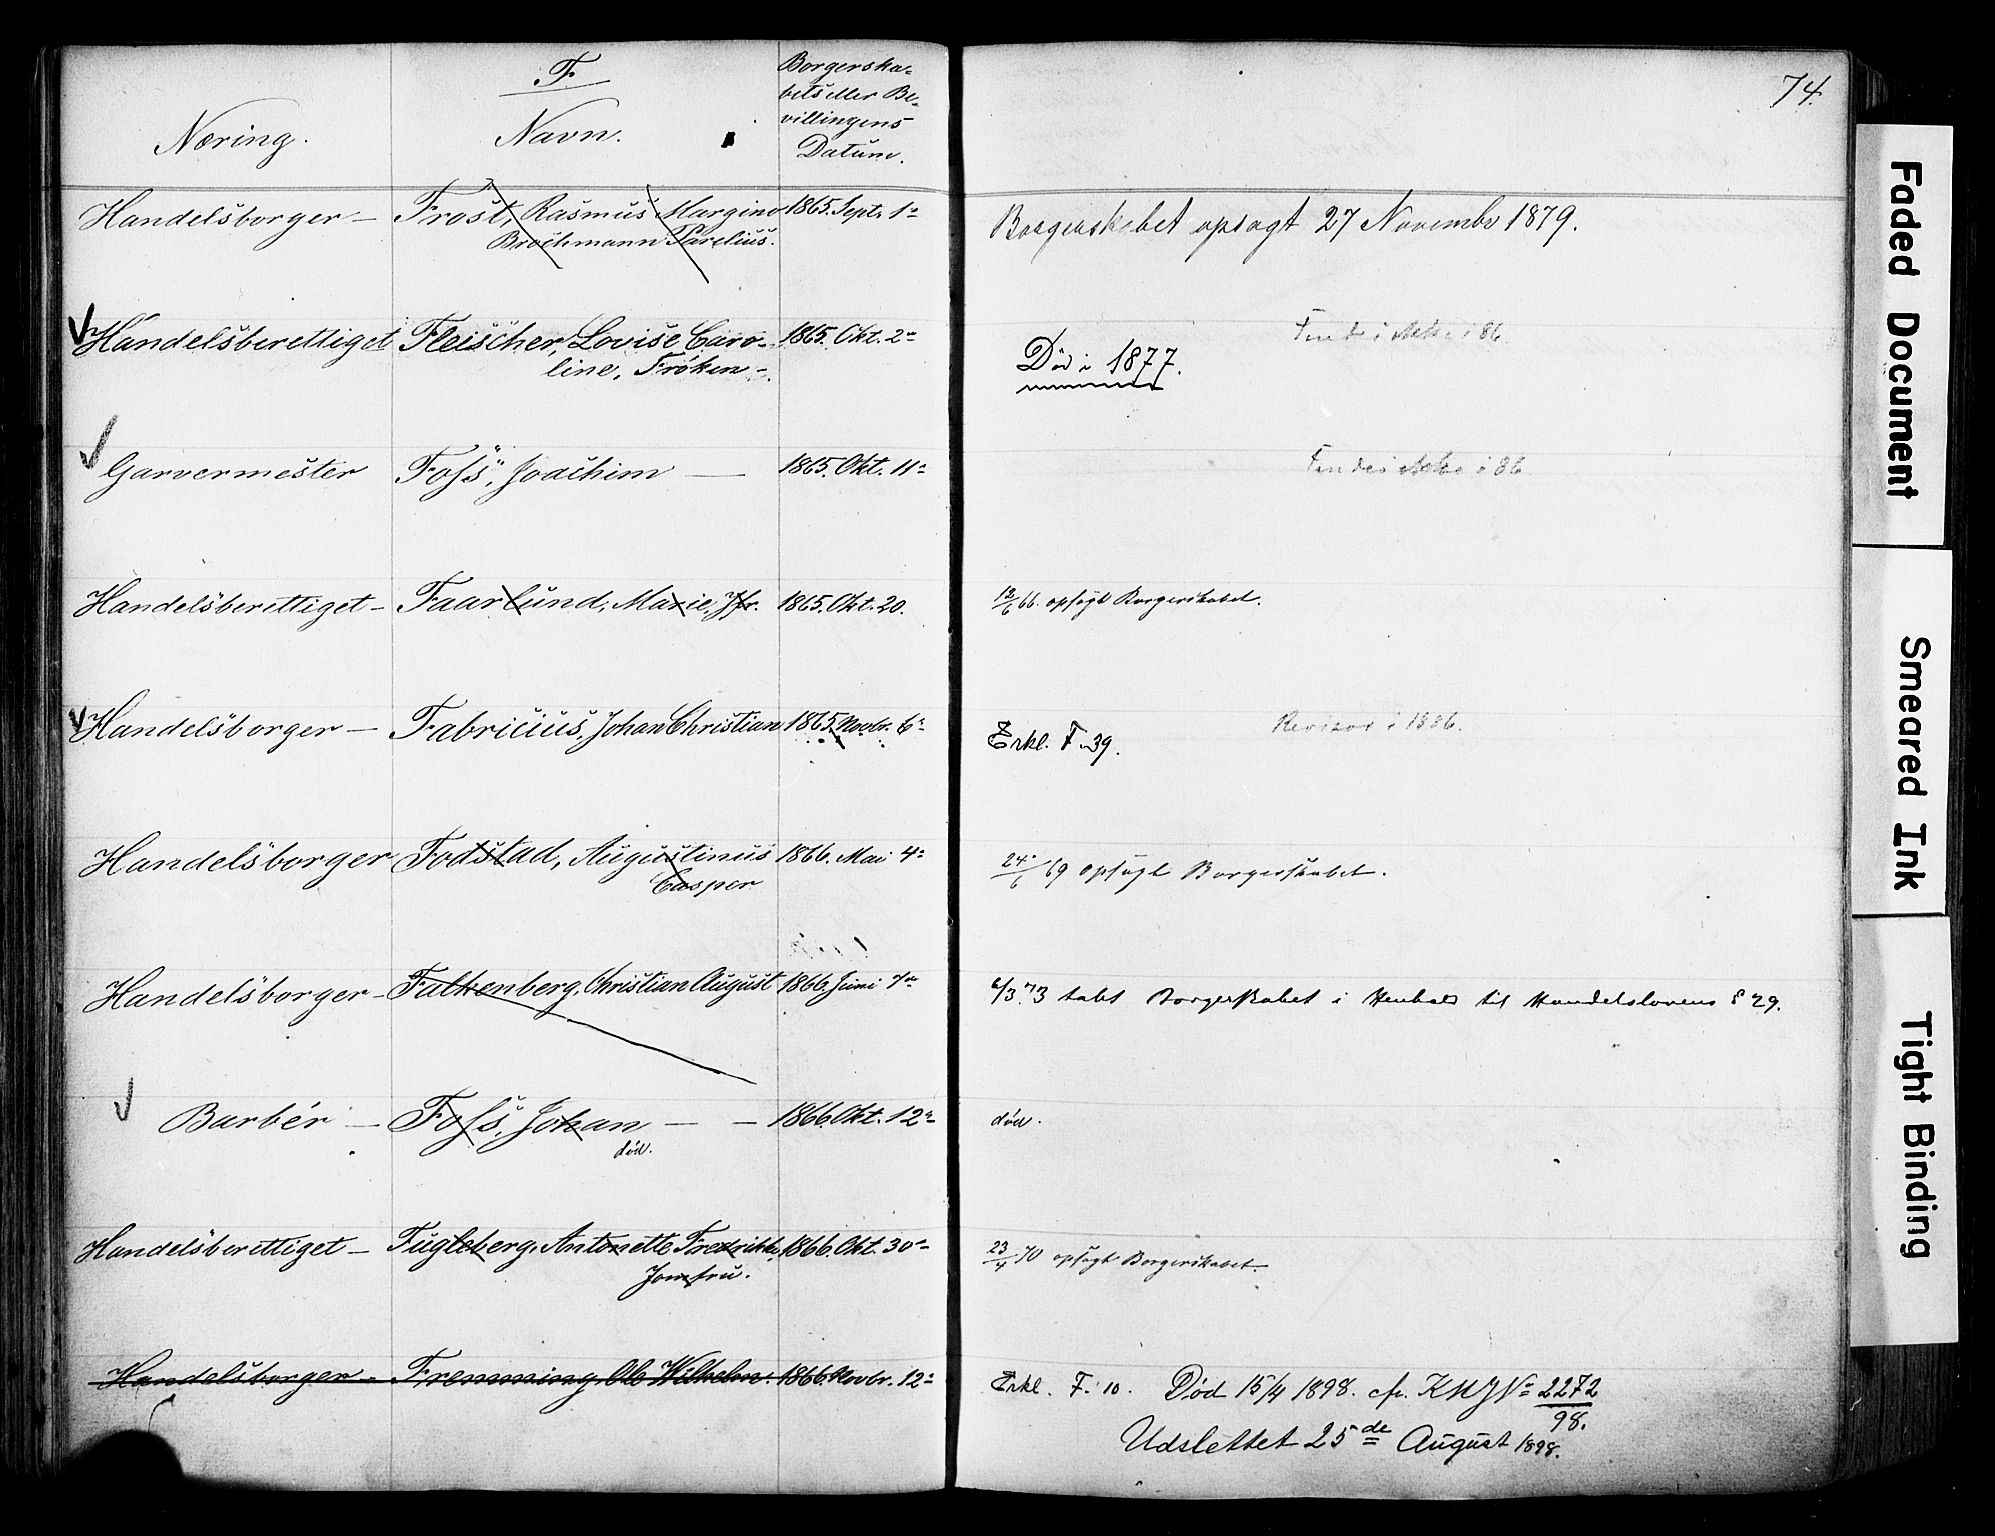 F.
Næring.
Navn.
Borgerska-
bets eller Be-
villingens
Datum.
74.
Handelsborger — Frost, Rasmus Margino 1865. Sept. 1-
Brochmann Parelius.
Borgerskabet opsagt 27 November 1879.
Handelsberettiget Fleischer, Lovise Caro- 1865. Okt. 2-
line, Frøken -.
Død i 1877.
i 86
Garvermester Foss, Joachim — 1865. Okt. 11-
i 86
Handelsberettiget - Faarlund, Marie, Jfr. 1865. Okt. 20.
18/6 66. opsagt Borgerskabet.
Handelsborger — Fabricius, Johan Christian 1865. Novbr. 6-
Erkl. F. 39.
Revisor i 1886.
Handelsborger Fodstad, Augustinus 1866. Mai 4-
Casper
24/6 69 opsagt Borgerskabet.
Handelsborger - Falkenberg, Christian August 1866. Juni 7-
6/3 73 tabt Borgerskabet i Henhold til Handelslovens § 29.
Barbér — Foss, Johan — — 1866. Okt. 12-
død.
død.
Handelsberettiget — Fugleberg, Antonette Fredrikke, 1866. Okt. 30-
Jomfru.
23/4 70 opsagt Borgerskabet.
Handelsborger - Fremming, Ole Wilhelm. 1866. Novbr. 12-
Erkl. F. 10. Død 15/4 1898. cfr. No 2272
98.
Udslettet 25de August 1898.
Faded Document
Smeared Ink
Tight Binding